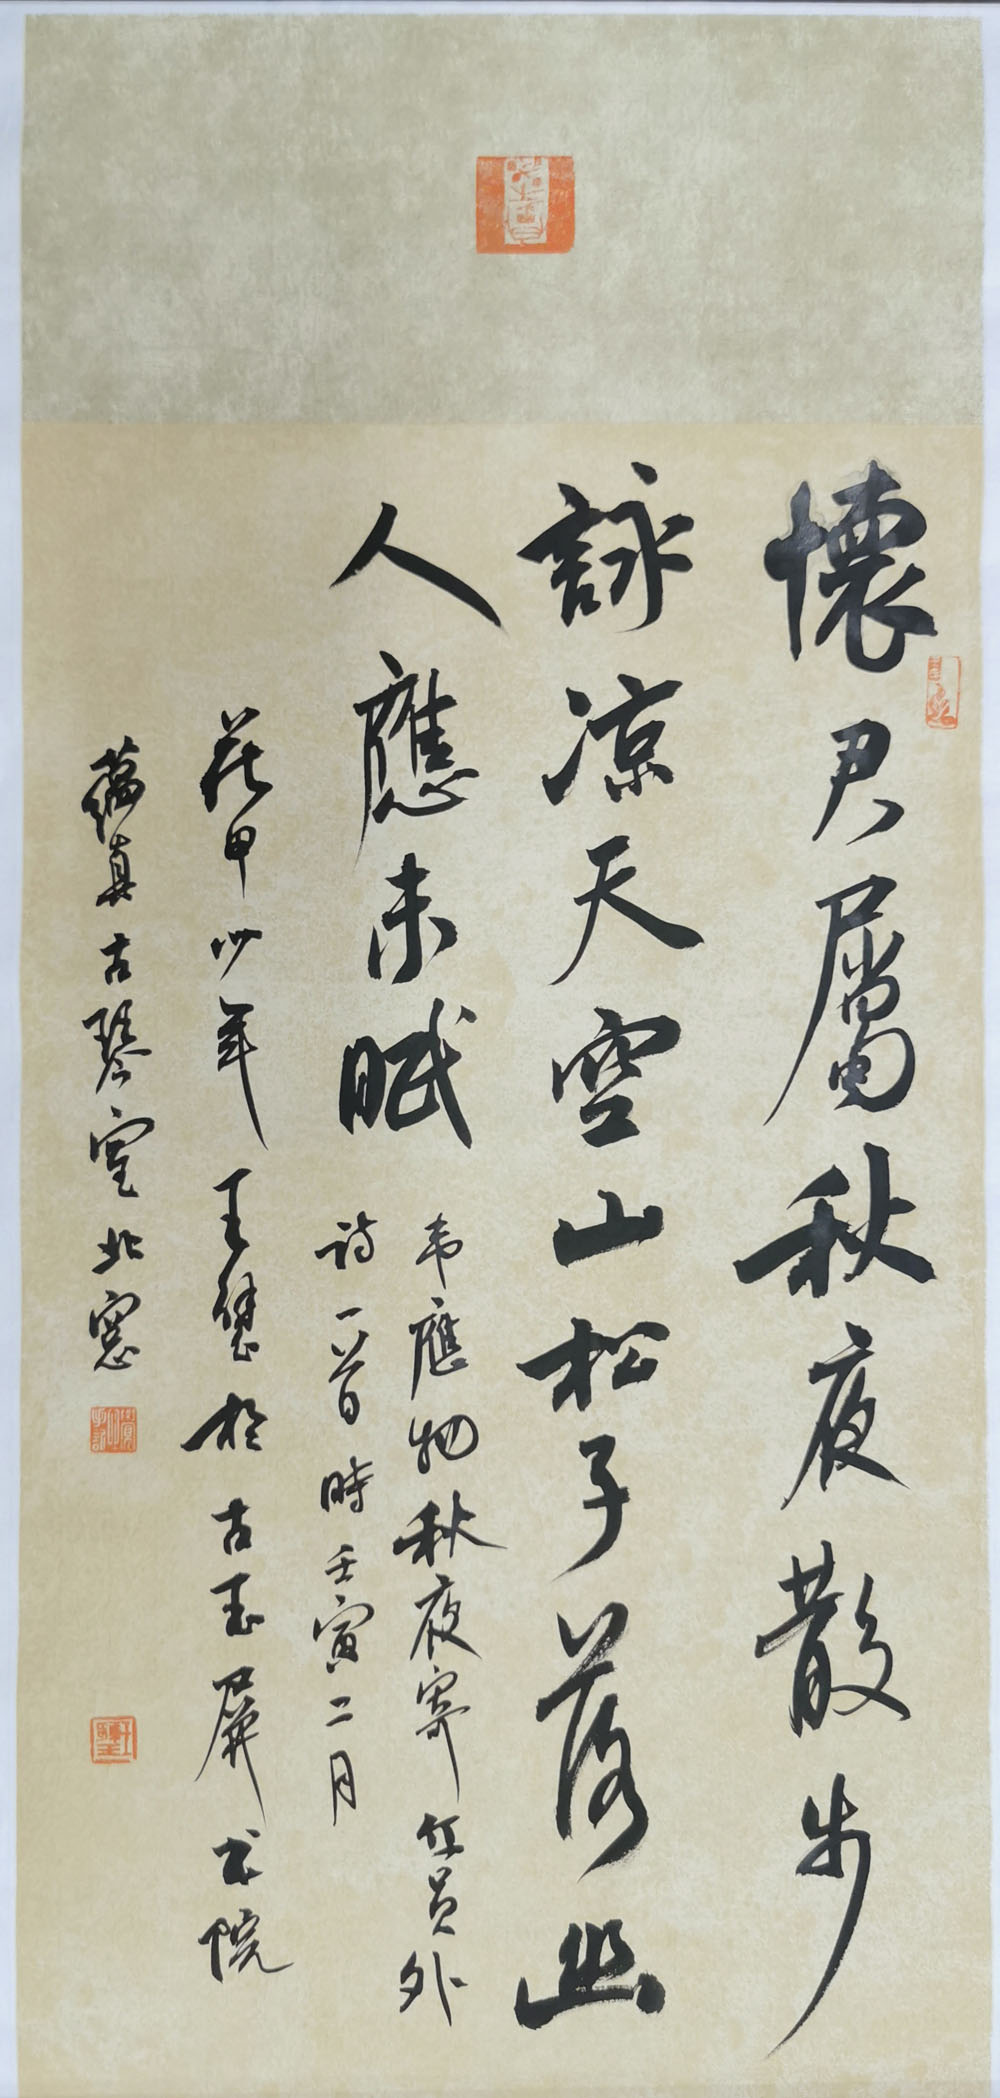 懷君屬秋夜散步
詠凉天空山松子落幽
人應未眠
韦應物秋夜寄丘员外
詩一首時壬寅二月
花甲少年王璧於古玉屏书院
蘊真古琴室北窓